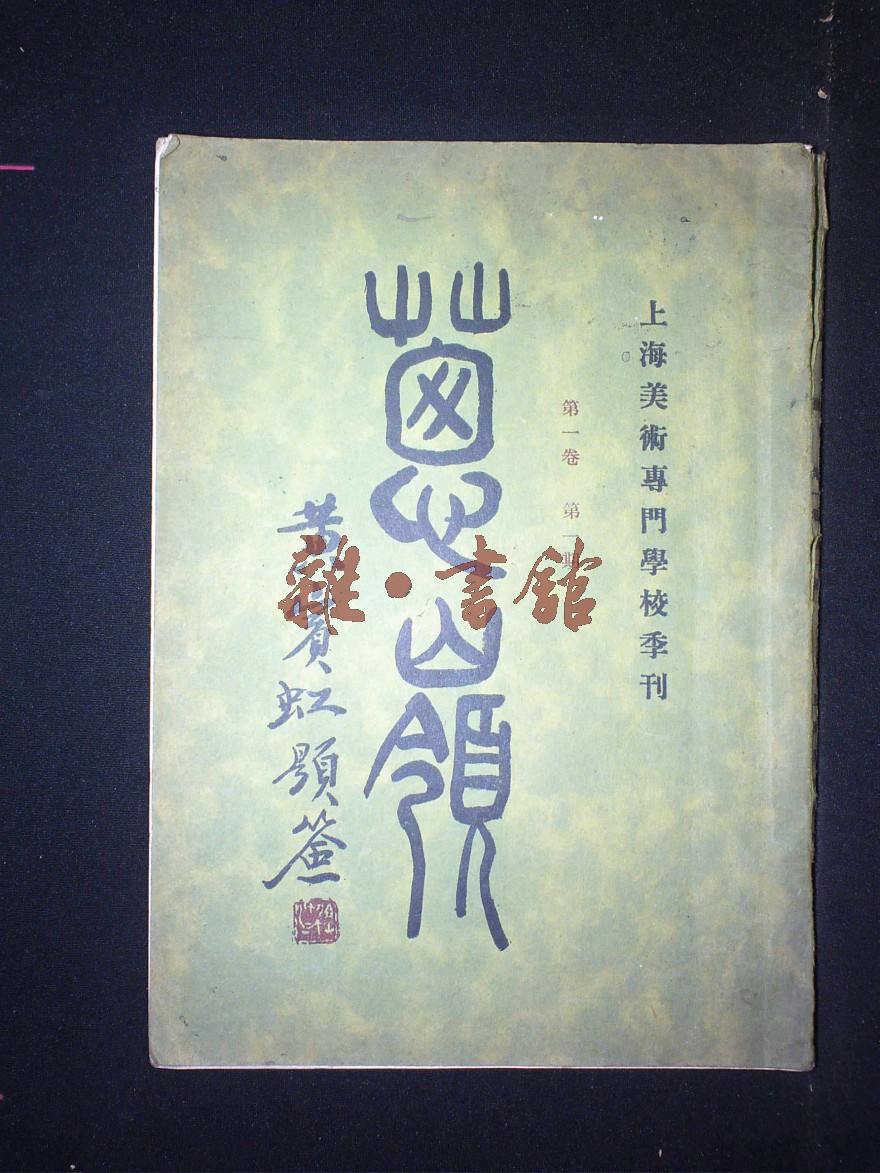 上海美術專門學校季刊
第一卷 第一期
蔥嶺
黄賓虹題签
雜·書館